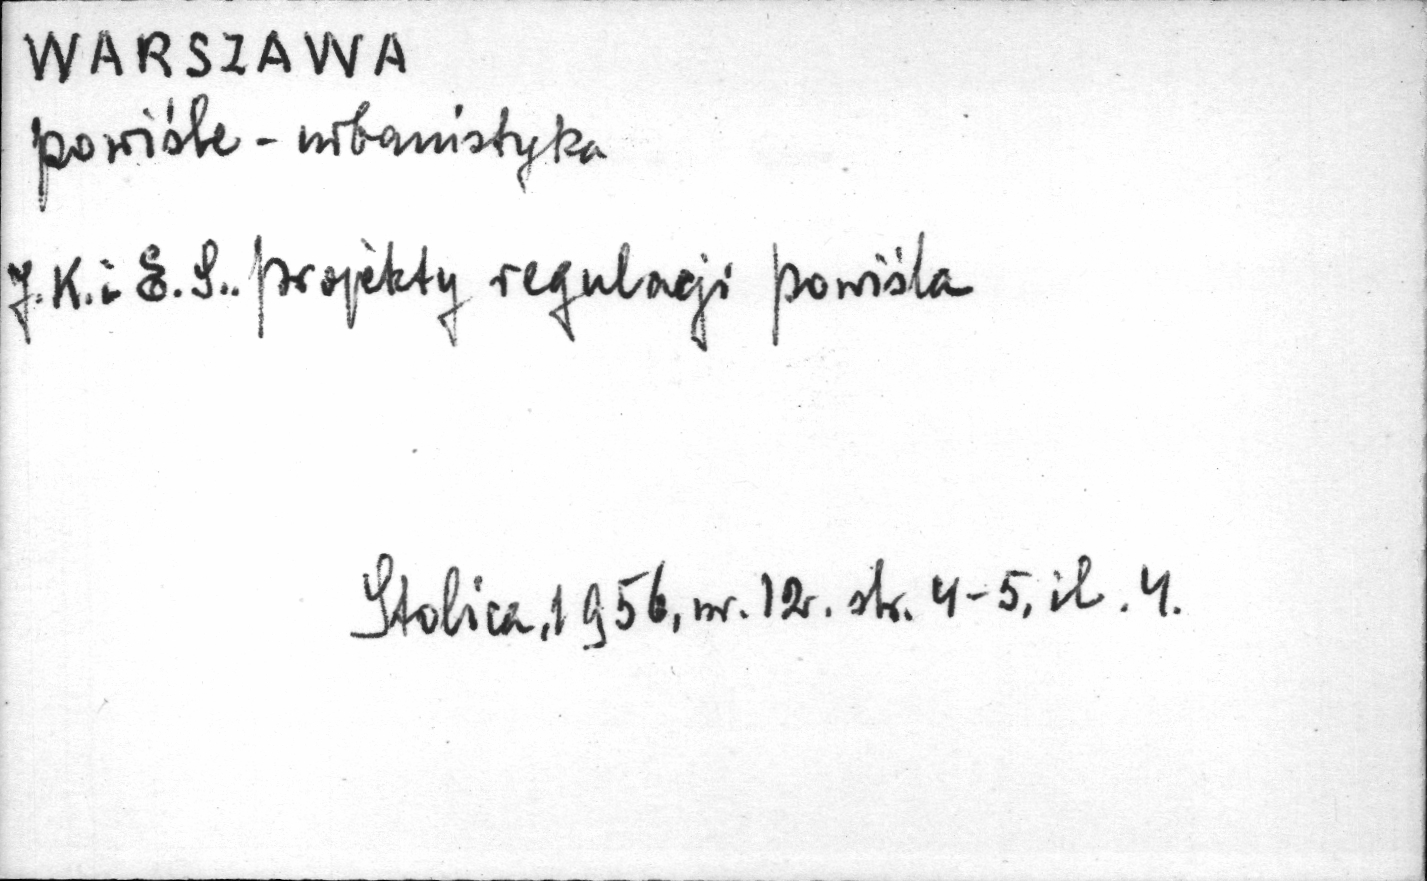 WARSZAWA
powiśle - urbanistyka
J.K. i E.S.. projekty regulacji powiśla
Stolica, 1956, nr. 12r. str. 4-5, il. 4.